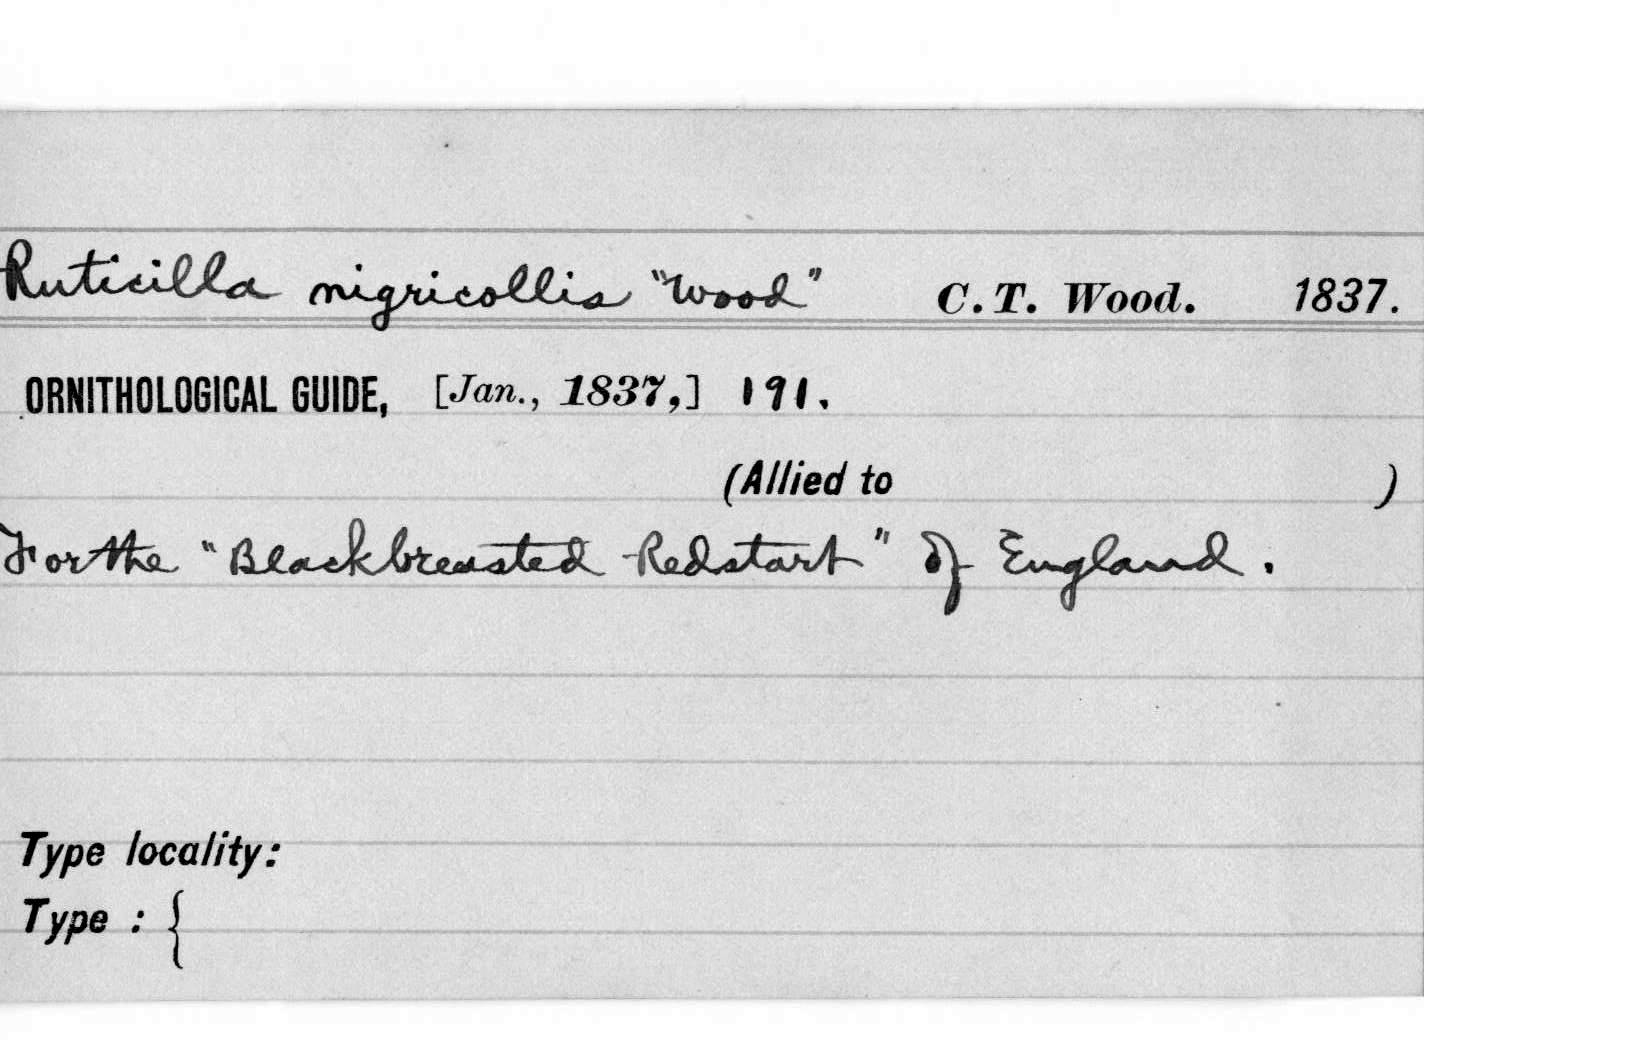 Ruticilla nigricollis "Wood" C. T. Wood. 1837.
ORNITHOLOGICAL GUIDE, [Jan., 1837,] 191.
(Allied to )
For the "Blackbreasted Redstart" of England.
Type locality:
Type : {